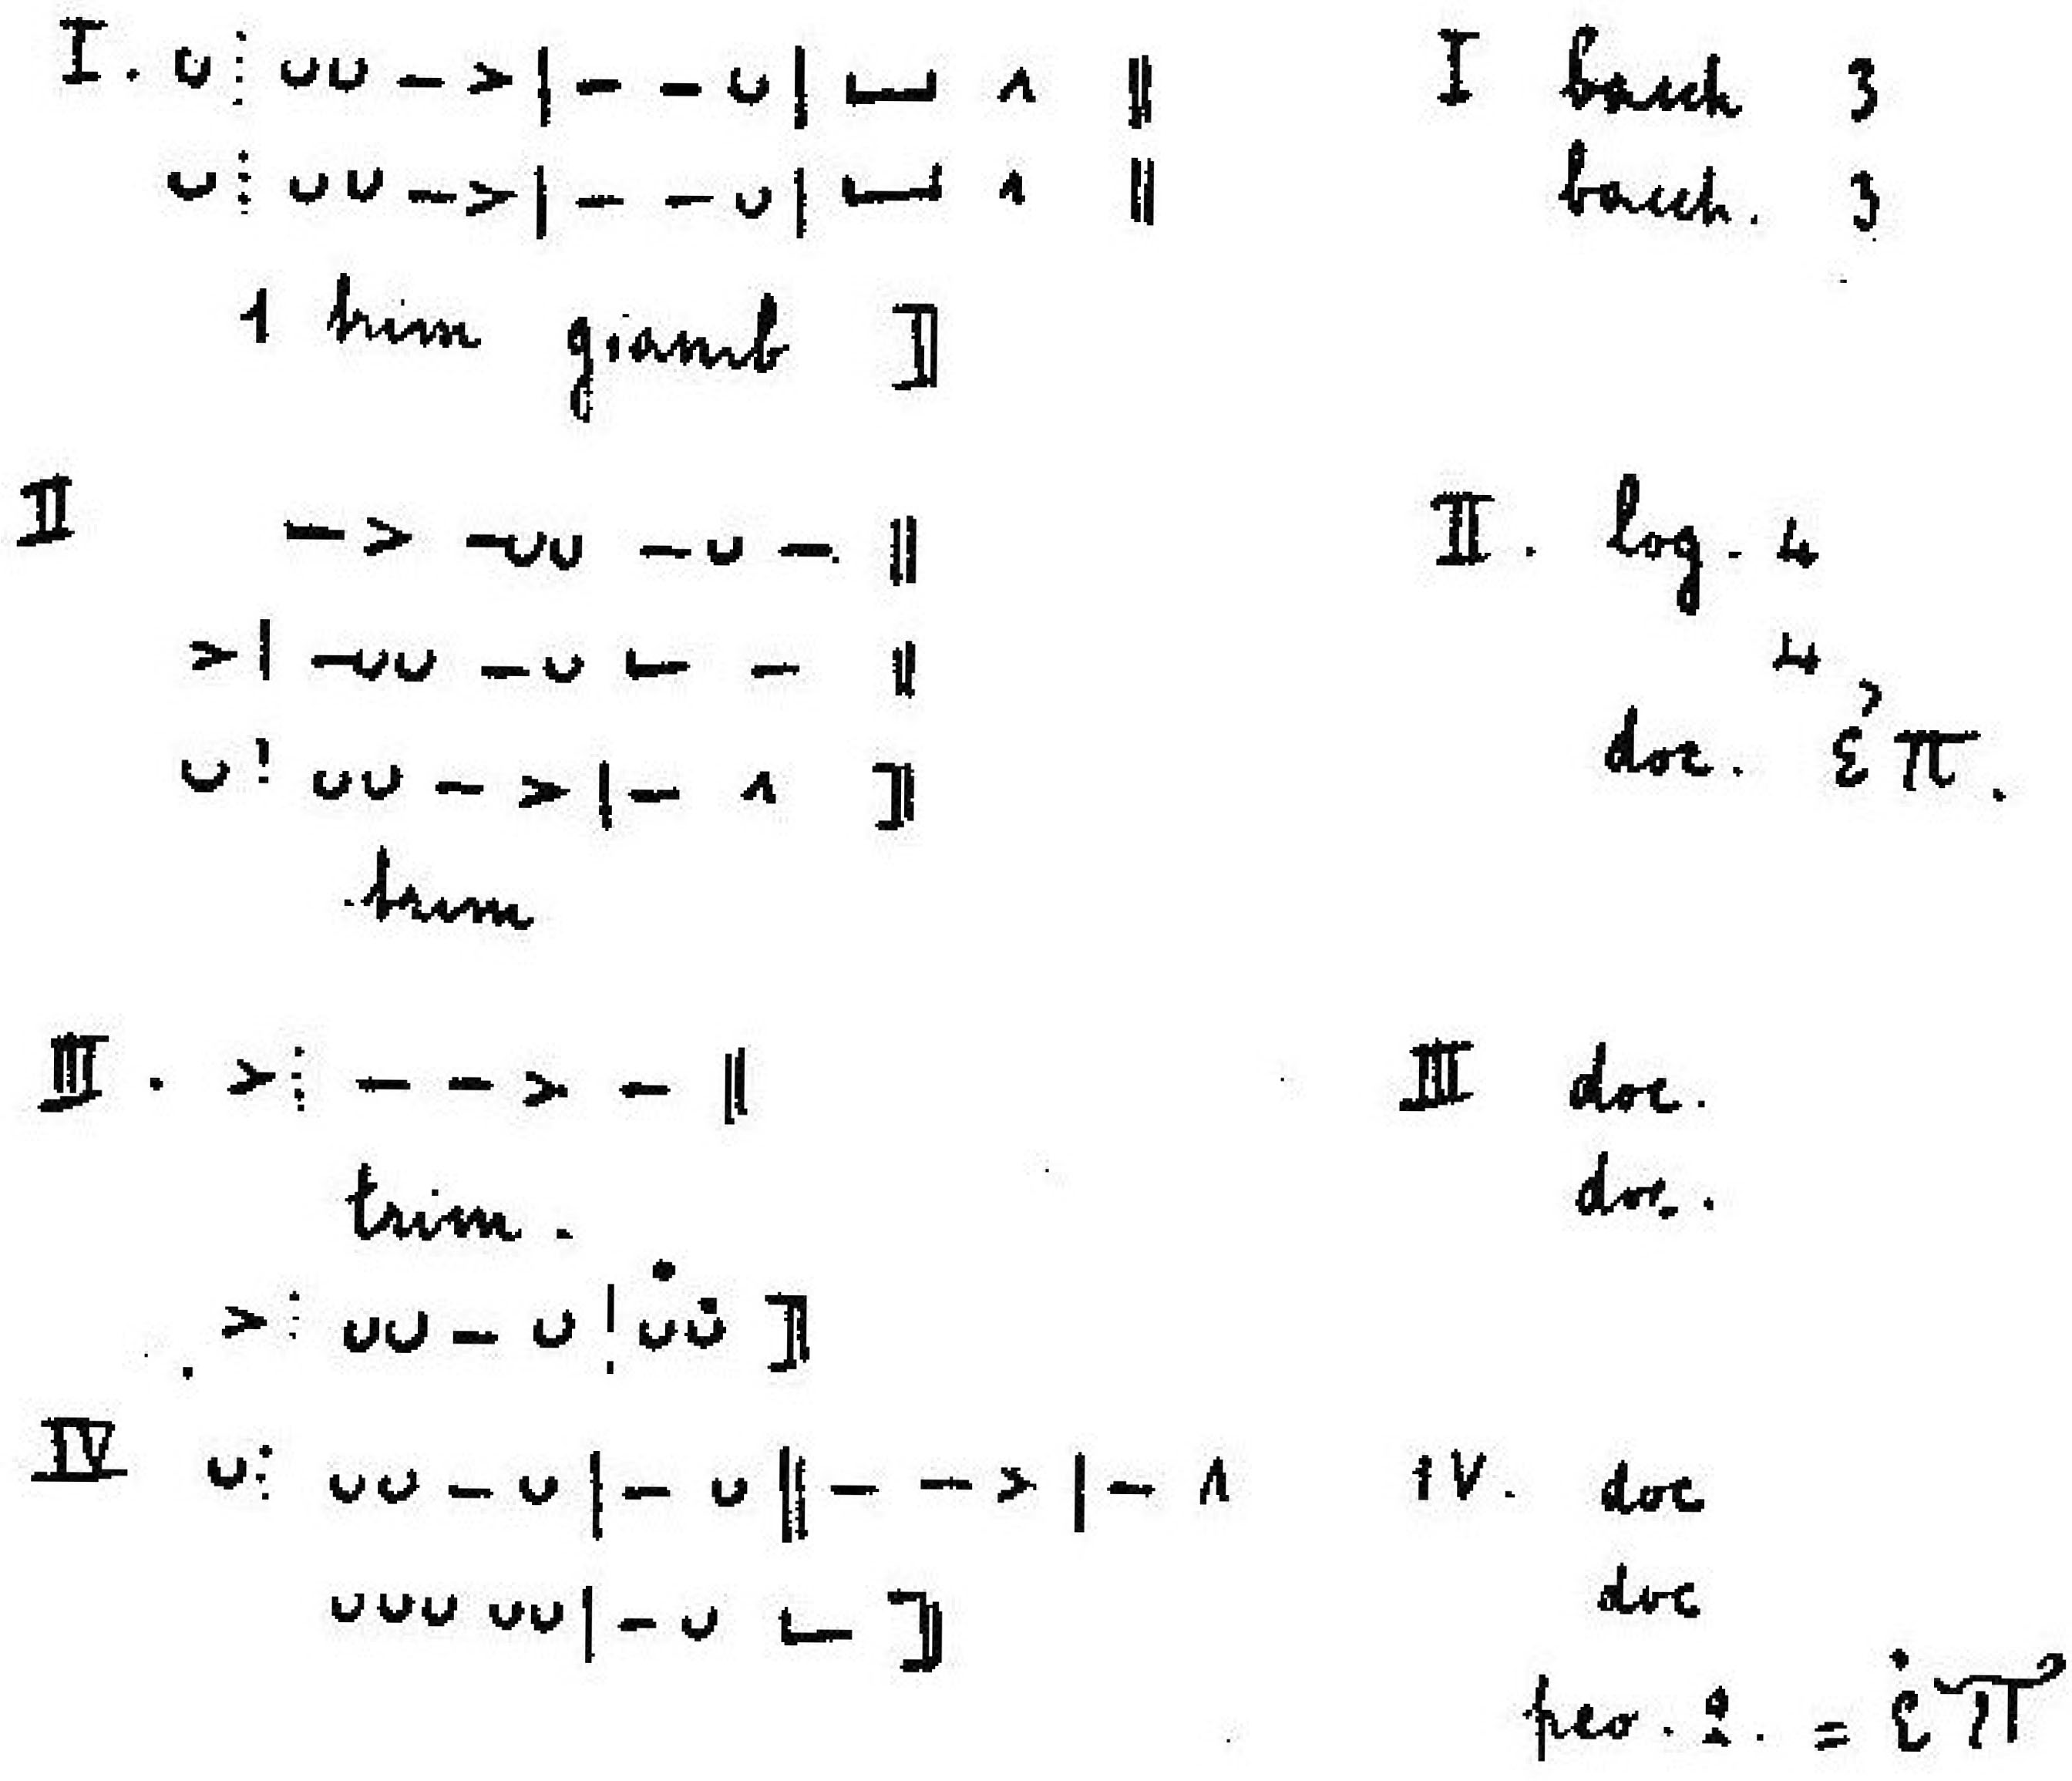 I. ∪ ⋮ ∪∪ – > | – – ∪ | ⌴ ∧ ‖ I bacch 3
∪ ⋮ ∪∪ – > | – – ∪ | ⌴ ∧ ‖ bacch. 3
1 trim giamb ]|
II – > –∪∪ – ∪ – ‖ II. log. 4
> | –∪∪ – ∪ ∟ – ‖ 4
∪ ⋮ ∪∪ – > | – ∧ ]| doc. ἐπ.
trim
III. > ⋮ – – > – ‖ III doc.
trim. doc.
> ⋮ ∪∪ – ∪ | ∪∪ ]|
IV ∪ ⋮ ∪∪ – ∪ | – ∪ ‖ – – > | – ∧ IV. doc
∪∪∪ ∪∪ | – ∪ ∟ ]| doc
peo. 2. = ἐπ